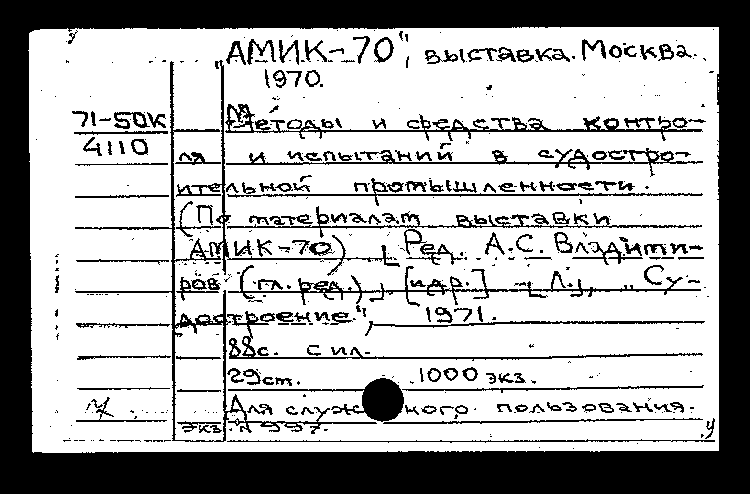 "АМИК-70", выставка. Москва.
1970.
71-50К
4110
Методы и средства контро-
ля и испытаний в судостро-
ительной промышленности.
(По материалам выставки
АМИК-70) [Ред. А.С. Владими-
ров (гл. ред.)]. [и др.] - [Л.], "Су-
достроение", 1971.
88с. с ил.
29см. 1000 экз.
Для служ ного пользования.
экз. N 997.